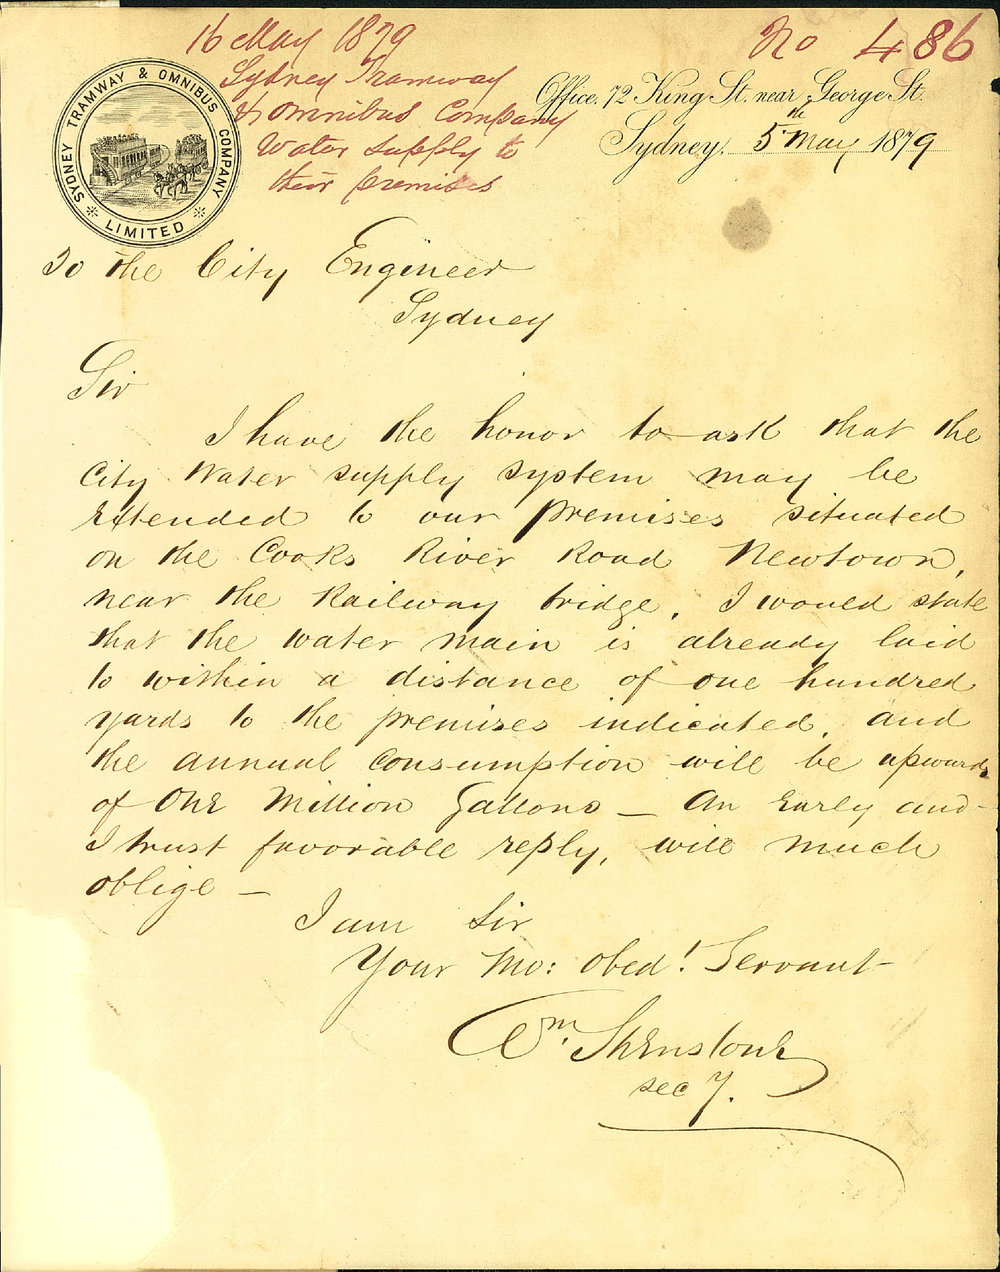 16 May 1879
No 486
Sydney Tramway
& Omnibus Company
Water supply to
their premises
SYDNEY TRAMWAY & OMNIBUS COMPANY
LIMITED
Office, 72 King St. near George St.
Sydney, 5th May 1879
To the City Engineer
Sydney
Sir
I have the honor to ask that the
City Water supply system may be
Extended to our premises situated
on the Cooks River Road Newtown,
near the Railway bridge. I would state
that the water main is already laid
to within a distance of one hundred
yards to the premises indicated, and
the annual consumption will be upwards
of One Million Gallons — An Early and
I trust favorable reply, will much
oblige —
I am Sir
Your Mo: Obed! Servant
Wm. Shenstone
secy.